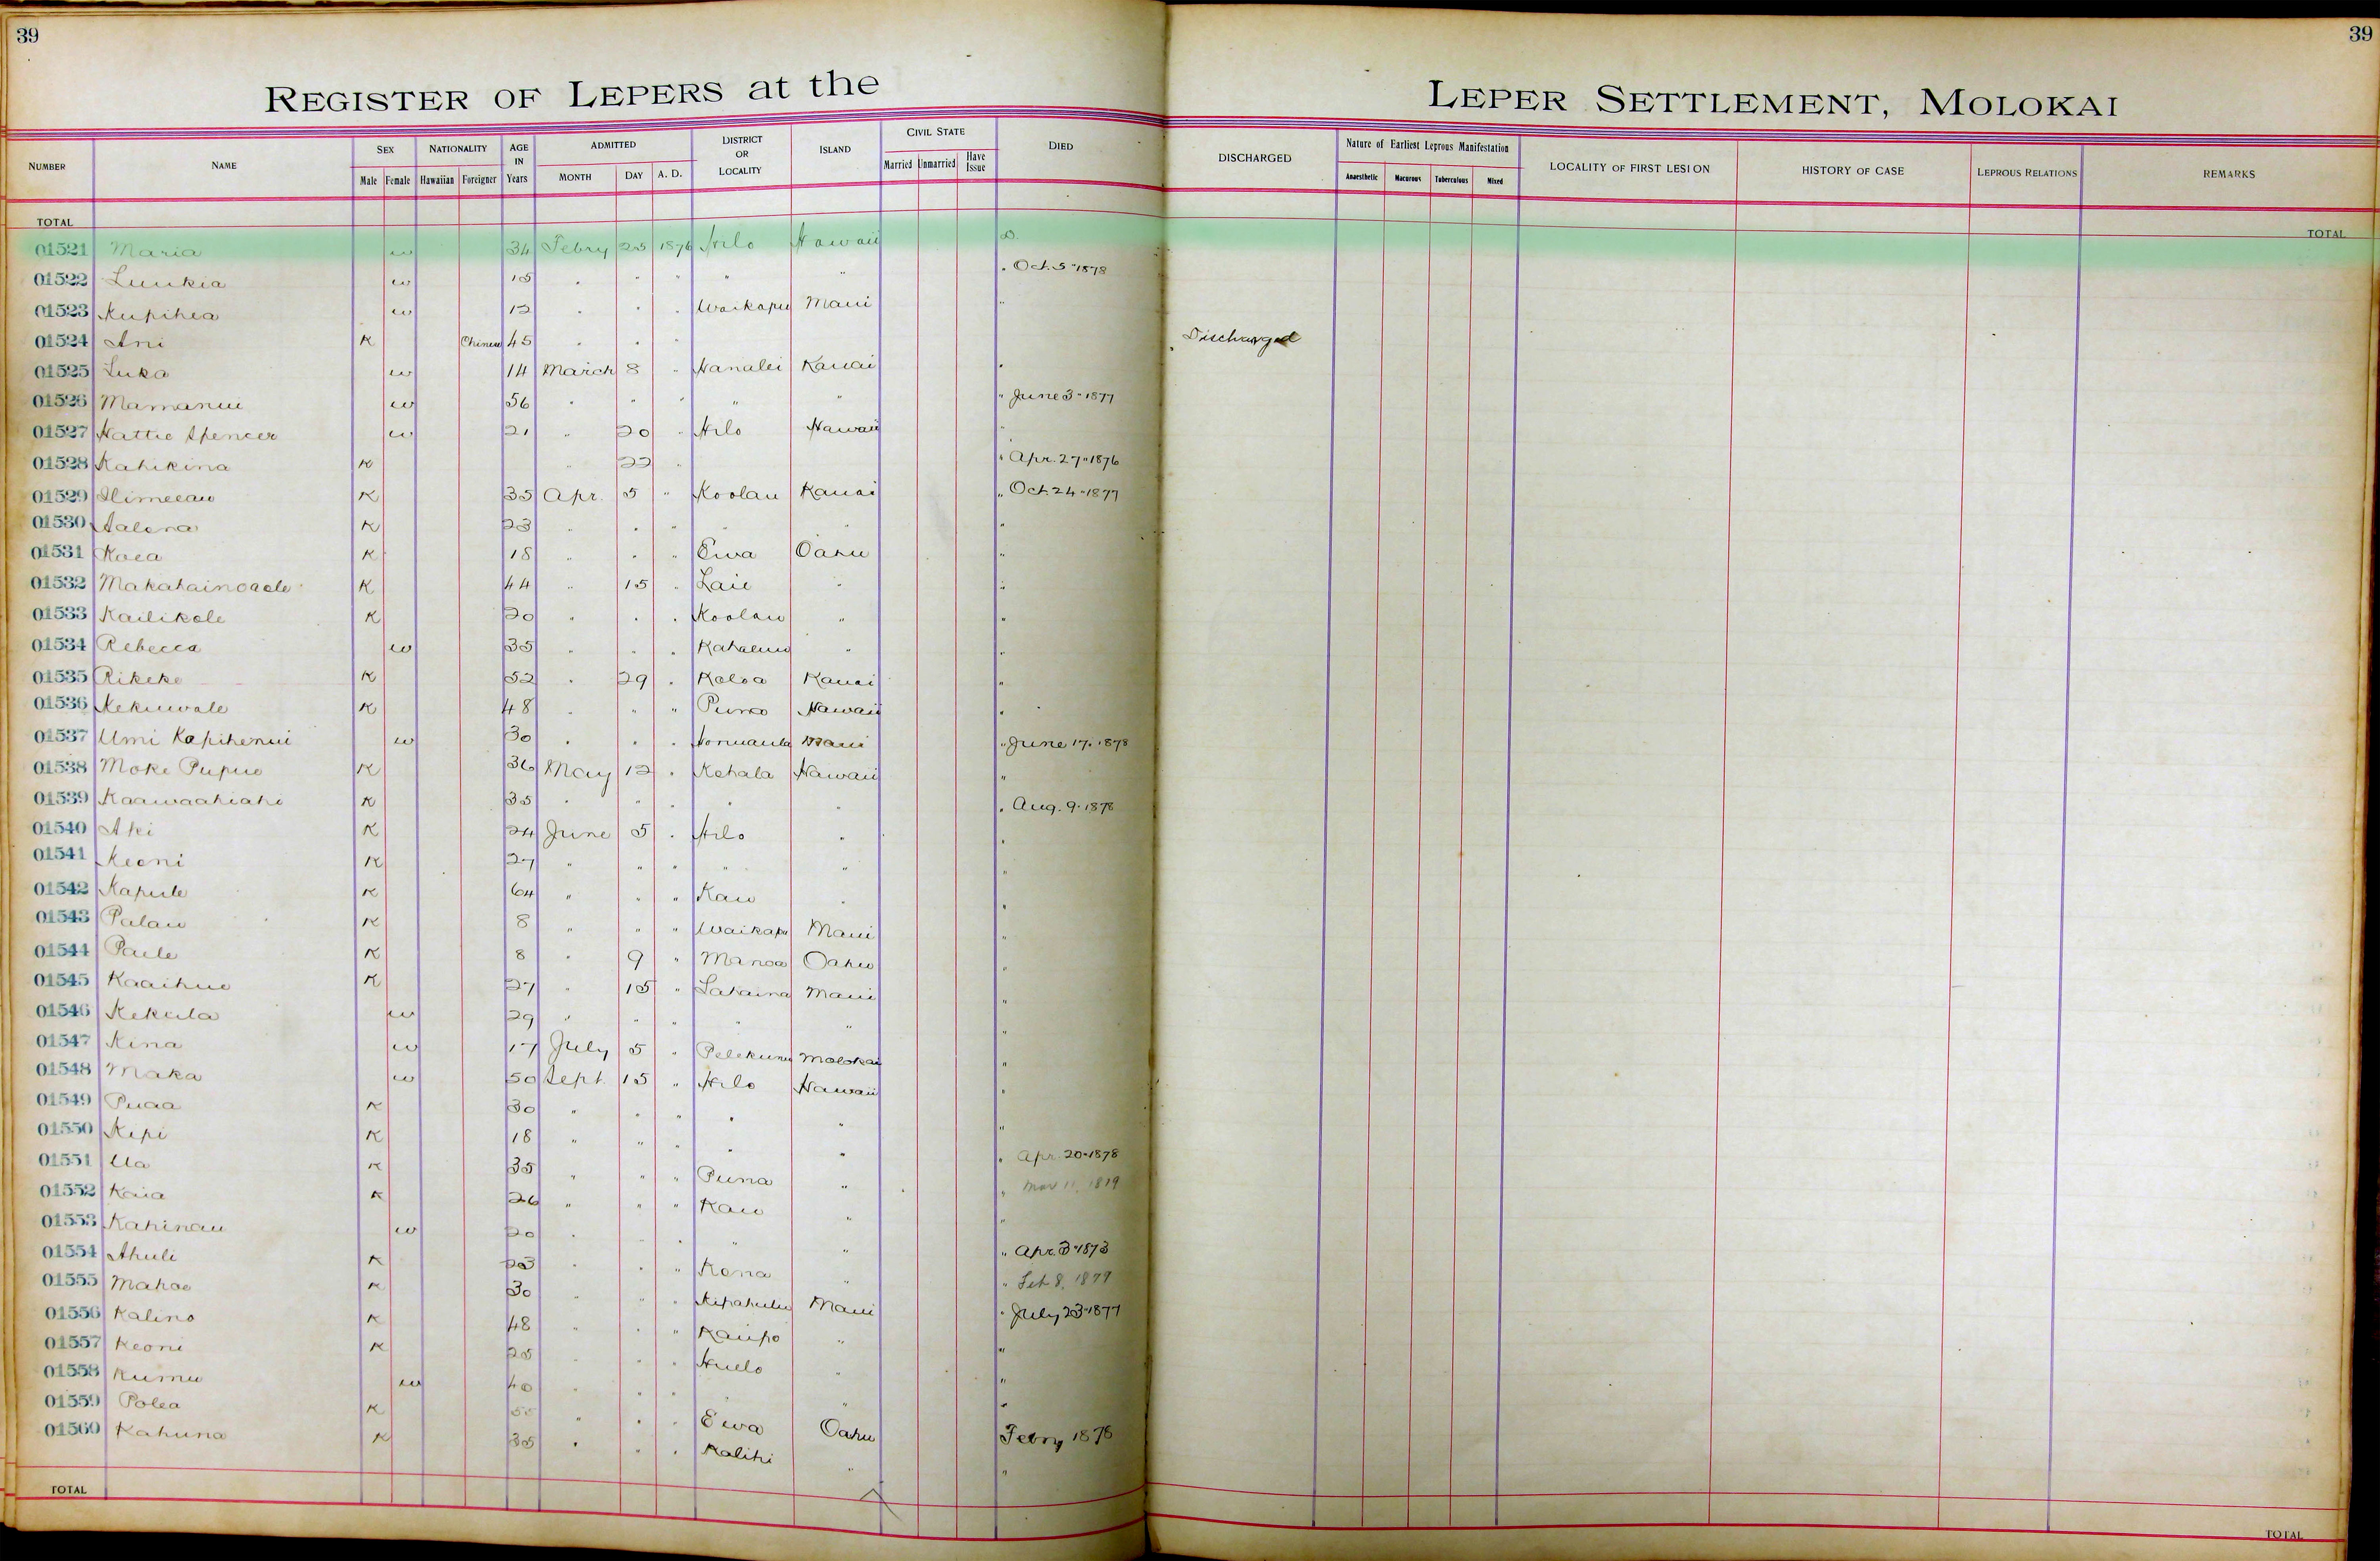 39
39
REGISTER OF LEPERS at the
LEPER SETTLEMENT, MOLOKAI
NUMBER NAME SEX Male Female NATIONALITY Hawaiian Foreigner AGE IN Years ADMITTED MONTH DAY A. D. DISTRICT OR LOCALITY ISLAND CIVIL STATE Married Unmarried Have Issue DIED
DISCHARGED Nature of Earliest Leprous Manifestation Anaesthetic Macurous Tuberculous Mixed LOCALITY OF FIRST LESION HISTORY OF CASE LEPROUS RELATIONS REMARKS
TOTAL TOTAL
01521 Maria w 34 Febry 25 1876 Hilo Hawaii D.
01522 Luukia w 15 " " " " " " Oct. 5 "1878
01523 Kupihea w 12 " " " Waikapu Maui "
01524 Ani K Chinese 45 " " " Discharged
01525 Luka w 14 March 8 " Hanalei Kauai "
01526 Mamanui w 56 " " " " " " June 3 " 1877
01527 Hattie Spencer w 21 " 20 " Hilo Hawaii "
01528 Kahikina K " 22 " " Apr. 27 " 1876
01529 K 35 Apr. 5 " Koolau Kauai " Oct. 24 " 1877
01530 Aalona K 23 " " " " " "
01531 Koea K 18 " " " Ewa Oahu "
01532 Makahainoaole K 44 " 15 " Laie " "
01533 Kailikole K 20 " " " Koolau " "
01534 Rebecca w 35 " " " Kahaluu " "
01535 Rikeke K 52 " 29 " Koloa Kauai "
01536 Kekuwale K 48 " " " Puna Hawaii "
01537 Umi Kapihenui w 30 " " " Honuaula Maui " June 17. 1878
01538 Moke Pupuo K 36 May 12 " Kohala Hawaii "
01539 Kaawaahiahi K 35 " " " " " " Aug. 9. 1878
01540 Aki K 24 June 5 " Hilo " "
01541 Keoni K 27 " " " " " "
01542 Kapule K 64 " " " Kau " "
01543 Palau K 8 " " " Waikapu Maui "
01544 Paele K 8 " 9 " Manoa Oahu "
01545 Kaaihue K 27 " 15 " Lahaina Maui "
01546 Kekula w 29 " " " " " "
01547 Kina w 17 July 5 " Pelekunu Molokai "
01548 Maka w 50 Sept. 15 " Hilo Hawaii "
01549 Puaa K 30 " " " " " "
01550 Kepi K 18 " " " " " " Apr. 20 " 1878
01551 Ua K 35 " " " Puna " " Mar 11, 1819
01552 Kaia K 26 " " " Kau " "
01553 Kahinau w 20 " " " " " " Apr. 3 " 1873
01554 Ahuli K 23 " " " Kona " " Feb 8, 1879
01555 Mahoe K 30 " " " Kipahulu Maui " July 23 " 1877
01556 Kalino K 48 " " " Kaupo " "
01557 Keoni K 25 " " " Huelo " "
01558 Kumu w 40 " " " " " "
01559 Polea K 55 " " " Ewa Oahu Febry 1878
01560 Kahuna K 35 " " " Kalihi " "
TOTAL TOTAL